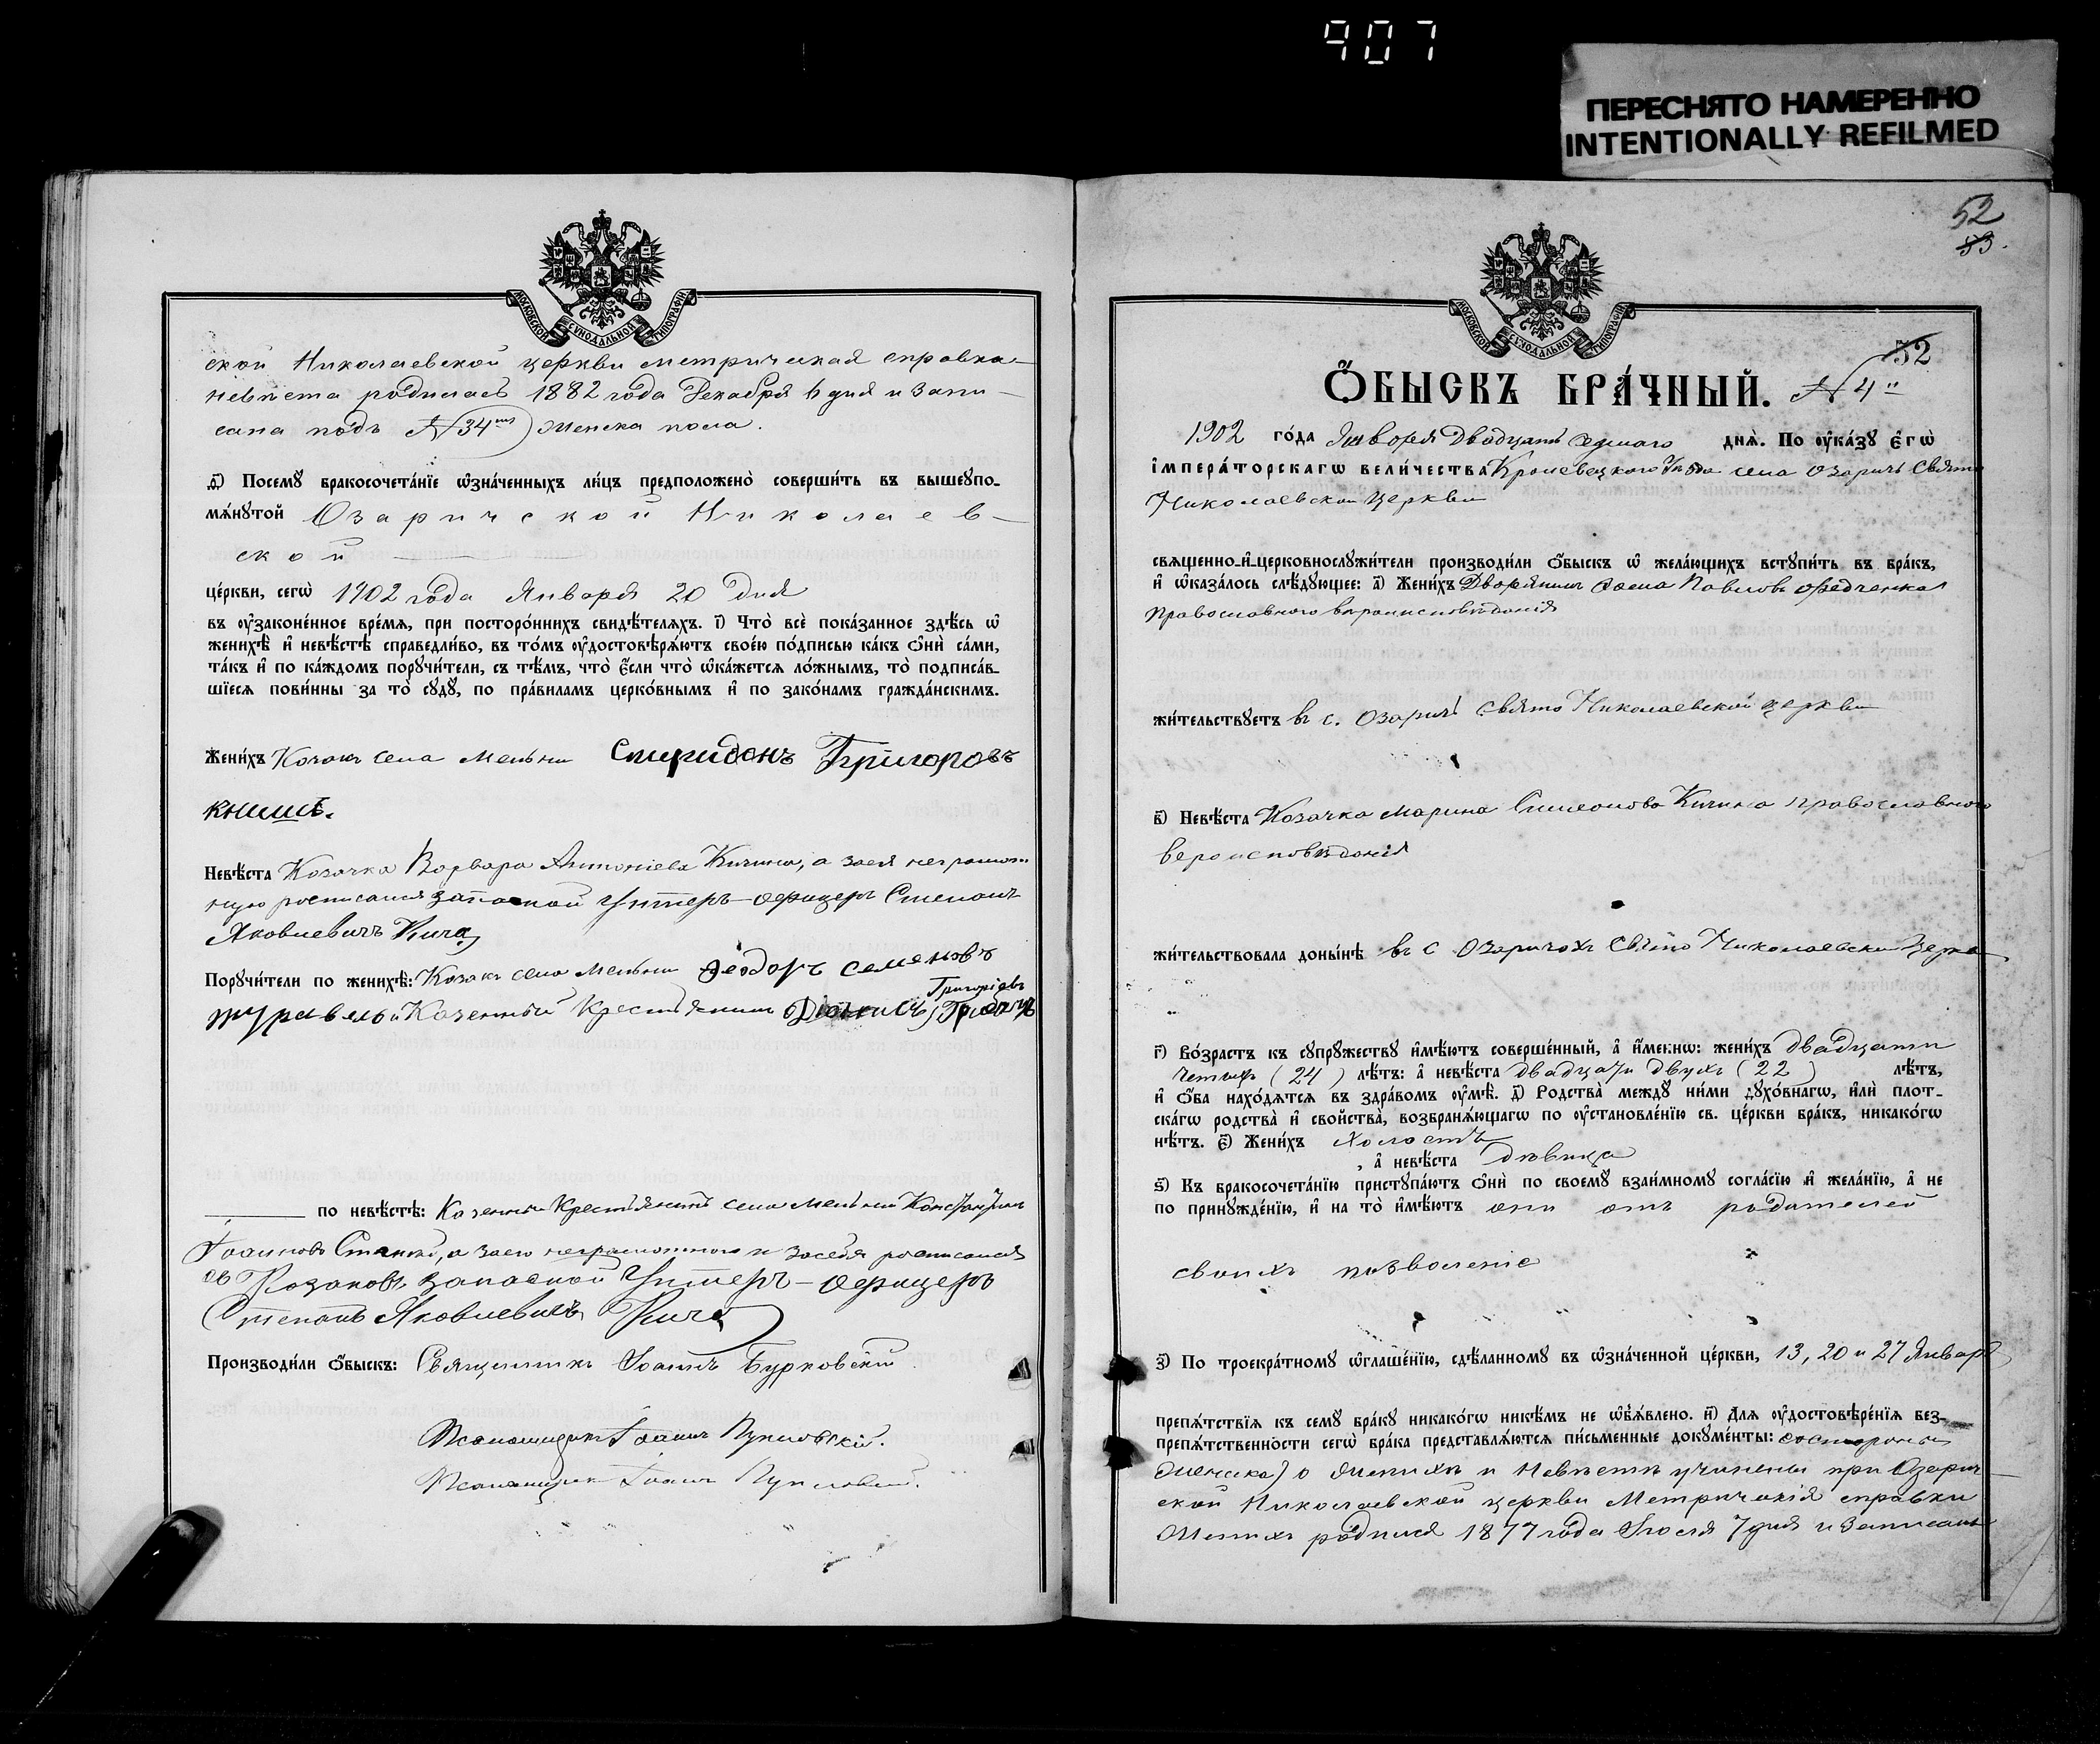 907
ПЕРЕСНЯТО НАМЕРЕННО
INTENTIONALLY REFILMED
МОСКОВСКОЙ СѴНОДАЛЬНОЙ ТИПОГРАФІИ
ской Николаевской церкви метрическая справка
невѣста родилась 1882 года Декабря 6 дня и запи-
сана подъ № 34 женска пола.
д҃) Посемꙋ бракосочета́нїе ѡ҆зна́ченныхъ ли́цъ предположено̀ соверши́ть въ вышеꙋпо-
мѧ́нꙋтой Озарической Николаев-
ской
це́ркви, сегѡ̀ 1902 года Января 20 дня
въ ᲂу҆зако́не́нное вре́мѧ, при посторо́ннихъ свидѣ́телѧхъ. і҃) Что̀ всѐ пока́занное здѣ́сь ѡ҆
женихѣ̀ и҆ невѣ́стѣ справедли́во, въ то́мъ ᲂу҆достовѣрѧ́ютъ свое́ю по́дписью ка́къ ѻ҆нѝ са́ми,
та́къ и҆ по ка́ждомъ порꙋчи́тели, съ тѣ́мъ, что̀ є҆́сли что̀ ѡ҆ка́жетсѧ ло́жнымъ, то̀ подписа́в-
шїесѧ пови́нны за то̀ сꙋдꙋ̀, по пра́виламъ церко́внымъ и҆ по зако́намъ гражда́нскимъ.
Жени́хъ Козакъ села Мельни Спиридонъ Григоровъ
Книшъ.
Невѣ́ста Козачка Варвара Антоніева Кичина, а за ея неграмот
ную росписался запасной Унтеръ-офицеръ Степанъ
Яковлевичъ Кича
Порꙋчи́тели по женихѣ̀: Козакъ села Мельни Ѳеодоръ Семеновъ
Григоріевъ
журавель и Казенный Крестьянинъ
по невѣ́стѣ: Казенный Крестьянинъ села Мельни Константинъ
Іоанновъ, а за его неграмотного росписался
съ Козаковъ запасной Унтеръ-офицеръ
Степанъ Яковлевичъ Кича
Производи́ли ѻ҆́быскъ: Священникъ Іоаннъ Бурковскій
Псаломщикъ Іоаннъ
Псаломщикъ Іоаннъ
52
53.
МОСКОВСКОЙ СѴНОДАЛЬНОЙ ТИПОГРАФІИ
52
Ѻ҆́БЫСКЪ БРА́ЧНЫЙ. № 4
1902 го́да Января Двадцать седмаго днѧ̀. По ᲂу҆ка́зꙋ є҆гѡ̀
і҆мпера́торскагѡ вели́чества Кролевецкого Уѣзда села Озаричъ Свято
Николаевской Церкви
свѧщенно-и҆-церковнослꙋжи́тели производи́ли ѻ҆́быскъ ѡ҆ жела́ющихъ встꙋпи́ть въ бра́къ,
и҆ ѡ҆каза́лось слѣ́дꙋющее: а҃) Жени́хъ Дворянинъ Павловъ Федченко
Православнаго вѣроисповѣданія
жи́тельствꙋетъ въ с. Озаричъ Свято Николаевской церкви
в҃) Невѣ́ста Козачка Марина Симеонова Кичина православного
вероисповѣданія
жи́тельствовала доны́нѣ въ с Озаричахъ Свято Николаевской Церкв
г҃) Во́зрастъ къ сꙋпрꙋ́жествꙋ и҆мѣ́ютъ соверше́нный, а҆ и҆́менно: жени́хъ двадцати
четырехъ (24) лѣ́тъ: а҆ невѣ́ста двадцати двухъ (22) лѣ́тъ,
и҆ ѻ҆́ба нахо́дѧтсѧ въ здра́вомъ ᲂу҆мѣ̀. д҃) Родства̀ междꙋ̀ ни́ми дꙋхо́внагѡ, и҆лѝ плот-
ска́гѡ родства̀ и҆ сво́йства, возбранѧ́ющагѡ по ᲂу҆становле́нїю св. це́ркви бра́къ, никако́гѡ
нѣ́тъ. є҃) Жени́хъ холостъ
, а҆ невѣ́ста дѣвица
ѕ҃) Къ бракосочета́нїю пристꙋпа́ютъ ѻ҆нѝ по своемꙋ̀ взаи́мномꙋ согла́сїю и҆ жела́нїю, а҆ не
по принꙋжде́нїю, и҆ на то̀ и҆мѣ́ютъ они отъ родителей
своихъ позволеніе
з҃) По троекра́тномꙋ ѡ҆глаше́нїю, сдѣ́ланномꙋ въ ѡ҆зна́ченной це́ркви, 13, 20 и 27 Января
препѧ́тствїѧ къ семꙋ̀ бра́кꙋ никако́гѡ никѣ́мъ не ѡ҆б̾ѧ́влено. и҃) Длѧ ᲂу҆достовѣре́нїѧ без-
препѧ́тственности сегѡ̀ бра́ка представлѧ́ютсѧ пи́сьменные докꙋме́нты: со стороны
жениха) о женихѣ и Невѣстѣ учинены при Озарич-
ской Николаевской церкви Метрическія справки
Женихъ родился 1877 года Іюля 7 дня и Записанъ